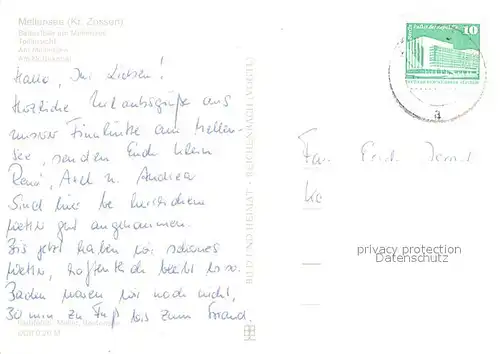 Mellensee (Kr. Zossen)
Badestelle am Mellensee
Teilansicht
Am Mellensee
Hallo, Ihr Lieben!
Herzliche Urlaubsgrüße aus
unserer Finnhütte am Mellen-
see, senden Euch
René, Axel u. Andrea
Sind hier bei herrlichem
Wetter gut angekommen.
Bis jetzt haben wir schönes
Wetter, hoffentlich bleibt es so.
Baden waren wir noch nicht,
30 min zu Fuß bis zum Strand.
BILD UND HEIMAT · REICHENBACH (VOGTL)
10
Fam.
privacy protection
Datenschutz